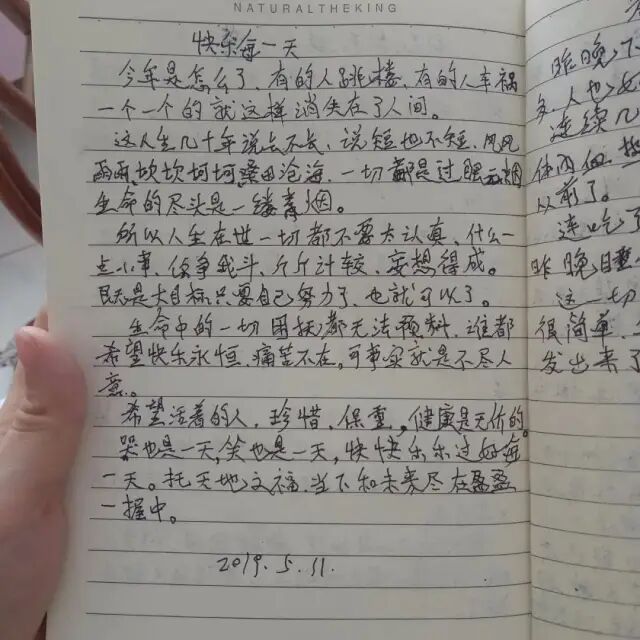 NATURALTHEKING
快乐每一天
今年是怎么了、有的人跳楼、有的人车祸
一个一个的就这样消失在了人间。
这人生几十年说长不长、说短也不短、风风
雨雨、坎坎坷坷桑田沧海、一切都是过眼云烟
生命的尽头是一缕青烟。
所以人生在世一切都不要太认真、什么一
点小事、你争我斗、斤斤计较、妄想得成。
既是大目标只要自己努力了、也就可以了。
生命中的一切困扰都无法预料、谁都
希望快乐永恒、痛苦不在,可事实就是不尽人
意。
希望活着的人、珍惜、保重,健康是无价的。
哭也是一天,笑也是一天,快快乐乐过好每
一天。托天地之福、当下和未来尽在盈盈
一握中。
2019.5.11.
昨晚下
多、人也
连续几
体内
以前了。
连吃了
昨晚睡
这一切
很简单、
发出来了